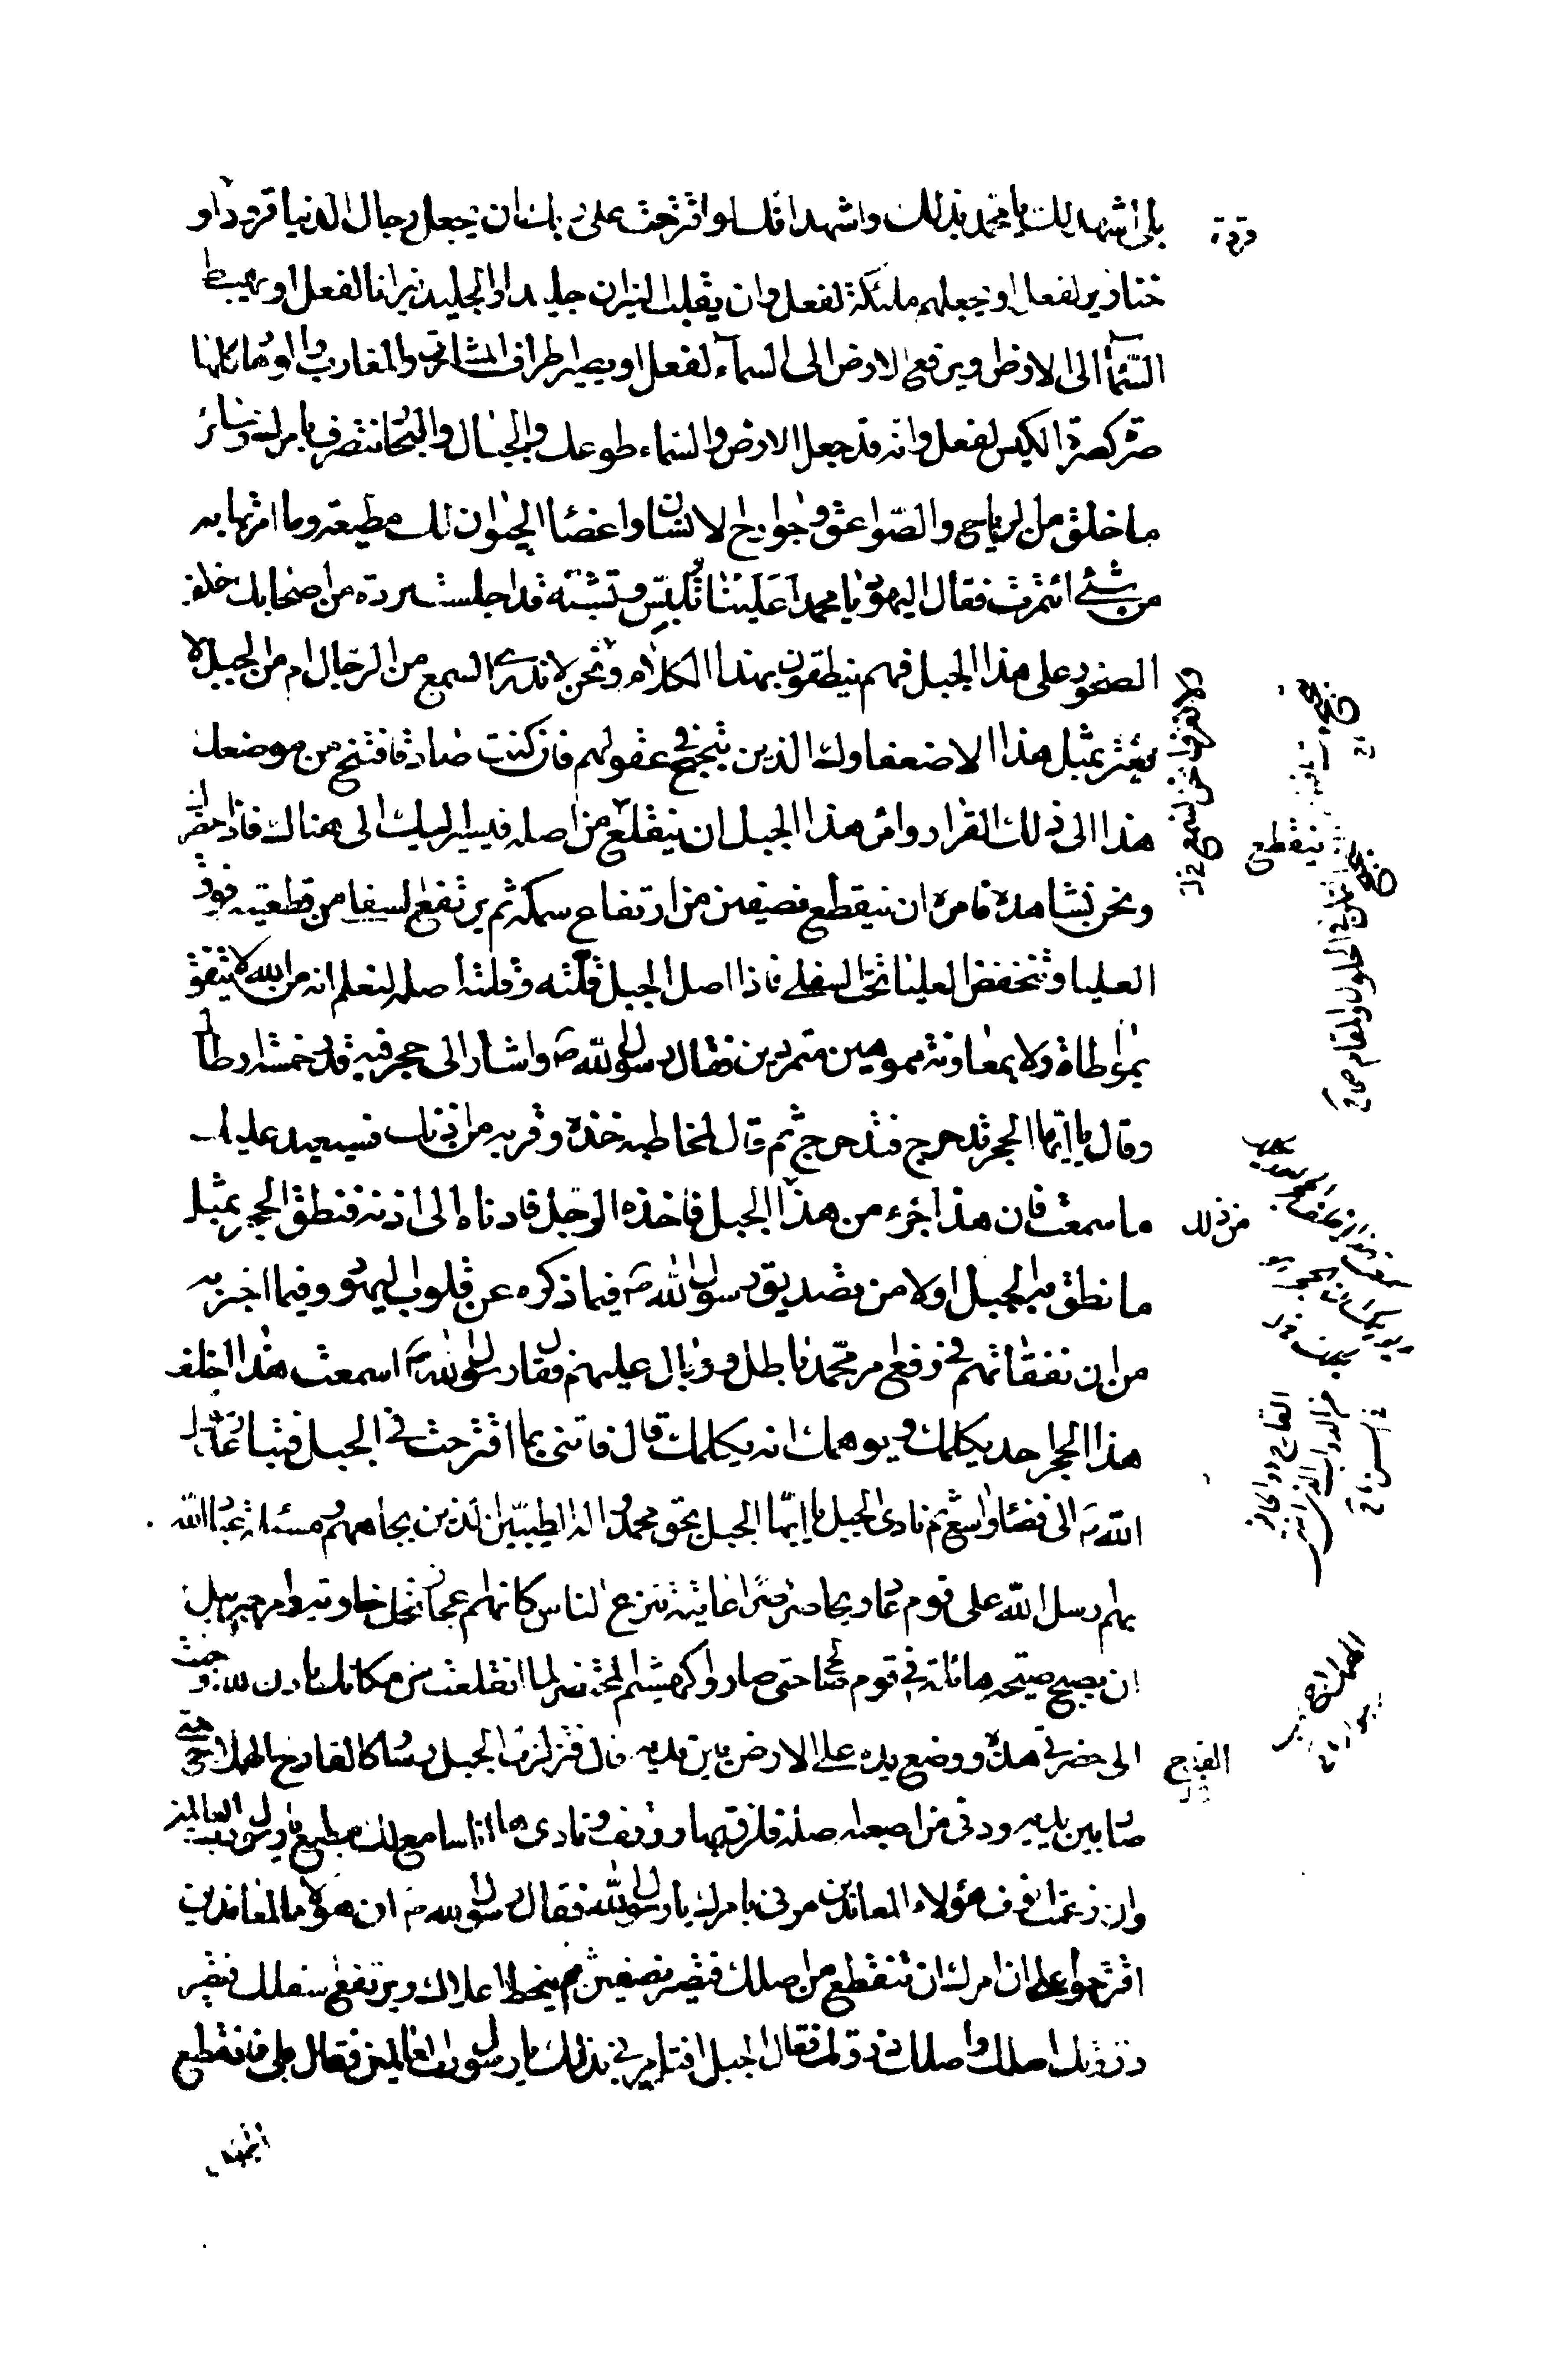 بلى اشهد لك يا محمد بذلك واشهد انك لو اقترحت على ربك ان يجعل رجال الدنيا قرودا و
خنازير لفعل او يجعلهم ملئكة لفعل وان يقلب النيران جليدا والجليد نيرانا لفعل او يهبط
السمآء الى الارض ويرفع الارض الى السمآء لفعل او يصير اطراف المشارق والمغارب والوهاد كلها
صرة كصرة الكيس لفعل وانه قد جعل الارض والسماء طوعك والجبال والبحار تنصرف بامرك وسائر
ما خلق من الرياح والصواعق وجوارح الانسان واعضاء الحيوان لك مطيعة وما امرتها به
من شئ ائتمرت فقال اليهود يا محمد اعلينا تلبس وتشبه قد اجلست مردة من اصحابك خلف
الصخور على هذا الجبل فهم ينطقون بهذا الكلام ونحن لا ندرى السمع من الرجال ام من الجبل لا
يغتر بمثل هذا الا ضعفاؤك الذين تبحبح فى عقولهم فان كنت صادقا فتنح من موضعك
هذا الى ذلك القرار وامر هذا الجبل ان ينقلع من اصله فيسير اليك الى هناك فاذا حضرك
ونحن نشاهده فامره ان ينقطع نصفين من ارتفاع سمكه ثم يرتفع السفلى من قطعتيه فوق
العليا وتنخفض العليا تحت السفلى فاذا اصل الجبل قلته وقلته اصله لنعلم انه من الله لا يتفق
بمواطاة ولا بمعاونة مموهين متمردين فقال رسول الله ص واشار الى حجر فيه قدر خمسة ارطال
وقال يا ايها الحجر تدحرج فتدحرج ثم قال لمخاطبه خذه وقربه من اذنك فسيعيد عليك
ما سمعت فان هذا جزء من هذا الجبل فاخذه الرجل فادناه الى اذنه فنطق الحجر بمثل
ما نطق به الجبل اولا من تصديق رسول الله ص فيما ذكره عن قلوب اليهود وفيما اخبر به
من ان نفقاتهم فى دفع امر محمد باطل ووبال عليهم فقال رسول الله ص اسمعت هذا اخلف
هذا الحجر احد يكلمك ويوهمك انه يكلمك قال فاتنى بما اقترحت فى الجبل فتباعد رسول
الله ص الى فضاء واسع ثم نادى الجبل يا ايها الجبل بحق محمد وآله الطيبين الذين بجاههم ومسئلة عباد الله
بهم ارسل الله على قوم عاد ريحا صرصرا عاتية تنزع الناس كانهم اعجاز نخل خاوية وامر جبرئيل
ان يصيح صيحة هائلة فى قوم صالح حتى صاروا كهشيم المحتضر لما انقلعت من مكانك باذن الله وجئت
الى حضرتى هذه ووضع يده على الارض بين يديه قال فتزلزل الجبل وسار كالقارح الهملاج حتى
صار بين يديه ودنى من اصبعه اصله فلزق بها ووقف ونادى ها انا سامع لك مطيع يا رسول رب العالمين
وان رغمت انوف هؤلاء المعاندين مرنى بامرك يا رسول الله فقال رسول الله ص ان هؤلاء المعاندين
اقترحوا على ان امرك ان تنقطع من اصلك فتصير نصفين ثم ينحط اعلاك ويرتفع اسفلك فتصير
ذروتك اصلك واصلك ذروتك فقال الجبل افتامرنى بذلك يا رسول رب العالمين فقال بلى فانقطع
الجبل
قردة
ينقطع
من ذلك
القارح